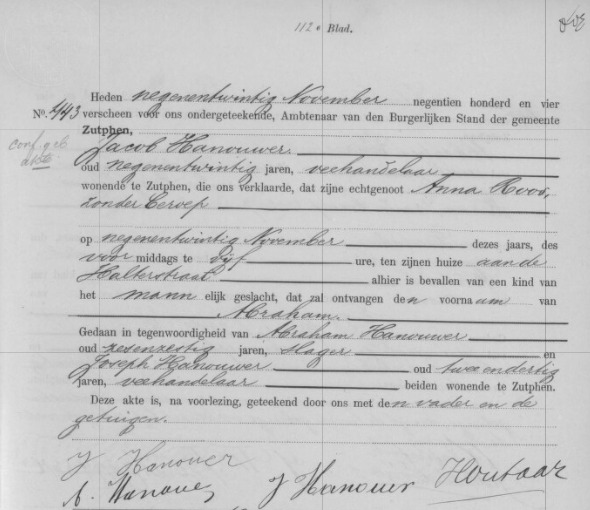 112e Blad.
Heden negenentwintig November negentien honderd en vier
No. 443 verscheen voor ons ondergeteekende, Ambtenaar van den Burgerlijken Stand der gemeente
Zutphen,
Jacob Hanouwer.
conf. geb.
akte
oud negenentwintig jaren, veehandelaar
wonende te Zutphen, die ons verklaarde, dat zijne echtgenoot Anna Roos,
zonder beroep
op negenentwintig November dezes jaars, des
voor middags te vijf ure, ten zijnen huize aan de
Halterstraat alhier is bevallen van een kind van
het mann elijk geslacht, dat zal ontvangen den voornaam van
Abraham.
Gedaan in tegenwoordigheid van Abraham Hanouwer
oud zesenzestig jaren, slager en
Joseph Hanouwer oud twee endertig
jaren, veehandelaar beiden wonende te Zutphen.
Deze akte is, na voorlezing, geteekend door ons met den vader en de
getuigen.
J Hanouer
A. Hanouer J Hanouer Houtaar